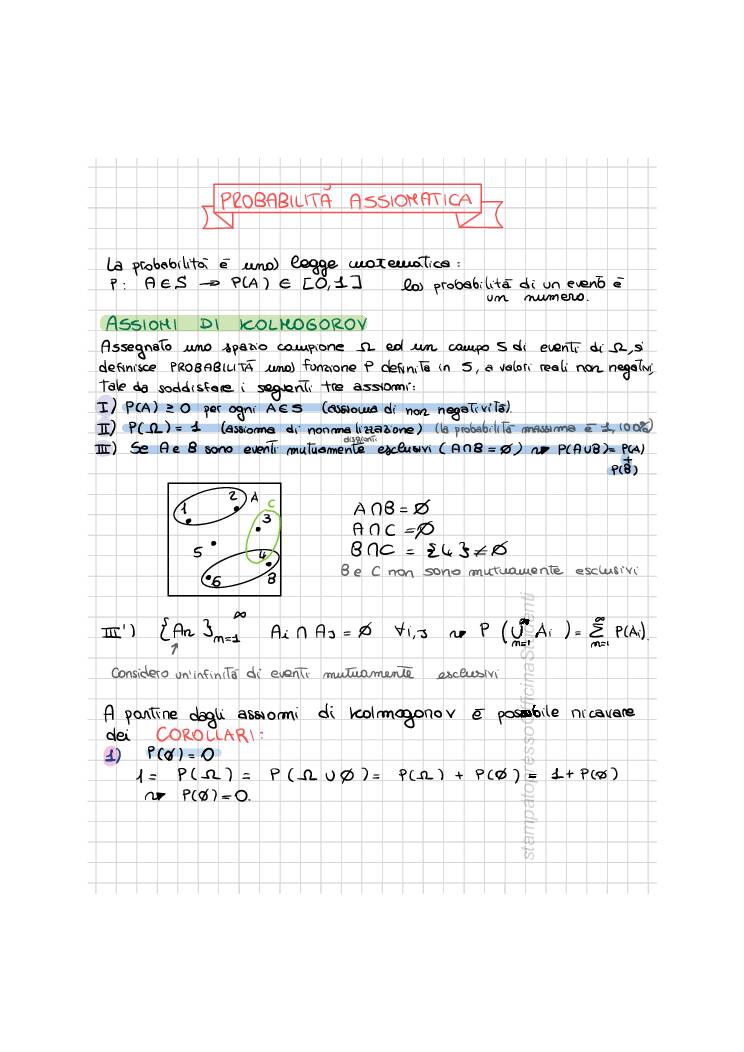 PROBABILITÀ ASSIOMATICA
La probabilità è una legge matematica:
P: A∈S → P(A) ∈ [0,1] la probabilità di un evento è
un numero.
ASSIOMI DI KOLMOGOROV
Assegnato uno spazio campione Ω ed un campo S di eventi di Ω, si
definisce PROBABILITÀ una funzione P definita in S, a valori reali non negativi,
tale da soddisfare i seguenti tre assiomi:
I) P(A) ≥ 0 per ogni A∈S (assioma di non negatività).
II) P(Ω) = 1 (assioma di normalizzazione) (la probabilità massima è 1, 100%)
disgiunti
III) Se A e B sono eventi mutuamente esclusivi (A∩B = ∅) ⇝ P(A∪B) = P(A)
+
P(B)
1 2 A C
3
5 4
6 B
A∩B = ∅
A∩C = ∅
B∩C = {4} ≠ ∅
B e C non sono mutuamente esclusivi
III') {An}ₙ₌₁^∞ Ai ∩ Aj = ∅ ∀i,j ⇝ P (⋃ₙ₌₁^∞ Ai) = ∑ₙ₌₁^∞ P(Ai).
Considero un'infinità di eventi mutuamente esclusivi
A partire dagli assiomi di Kolmogorov è possibile ricavare
dei COROLLARI:
1) P(∅) = 0
1 = P(Ω) = P(Ω ∪ ∅) = P(Ω) + P(∅) = 1 + P(∅)
⇝ P(∅) = 0.
stampatopressoOfficinaStudenti